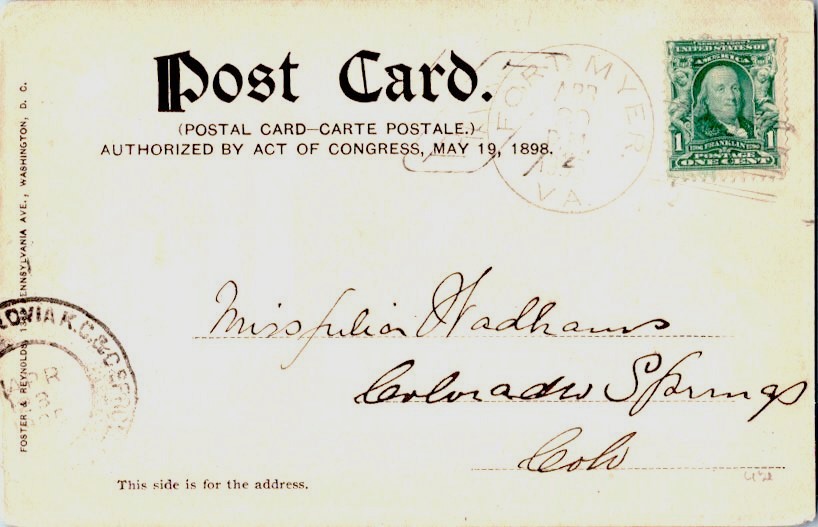 Post Card.
(POSTAL CARD—CARTE POSTALE.)
AUTHORIZED BY ACT OF CONGRESS, MAY 19, 1898.
FORT MYER,
VA.
SERIES 1902
UNITED STATES OF
AMERICA
1 FRANKLIN 1
POSTAGE
ONE CENT
FOSTER & REYNOLDS, PENNSYLVANIA AVE., WASHINGTON, D. C.
Miss Julia Wadhams
Colorado Springs
Colo
K.C.&C.
APR
This side is for the address.